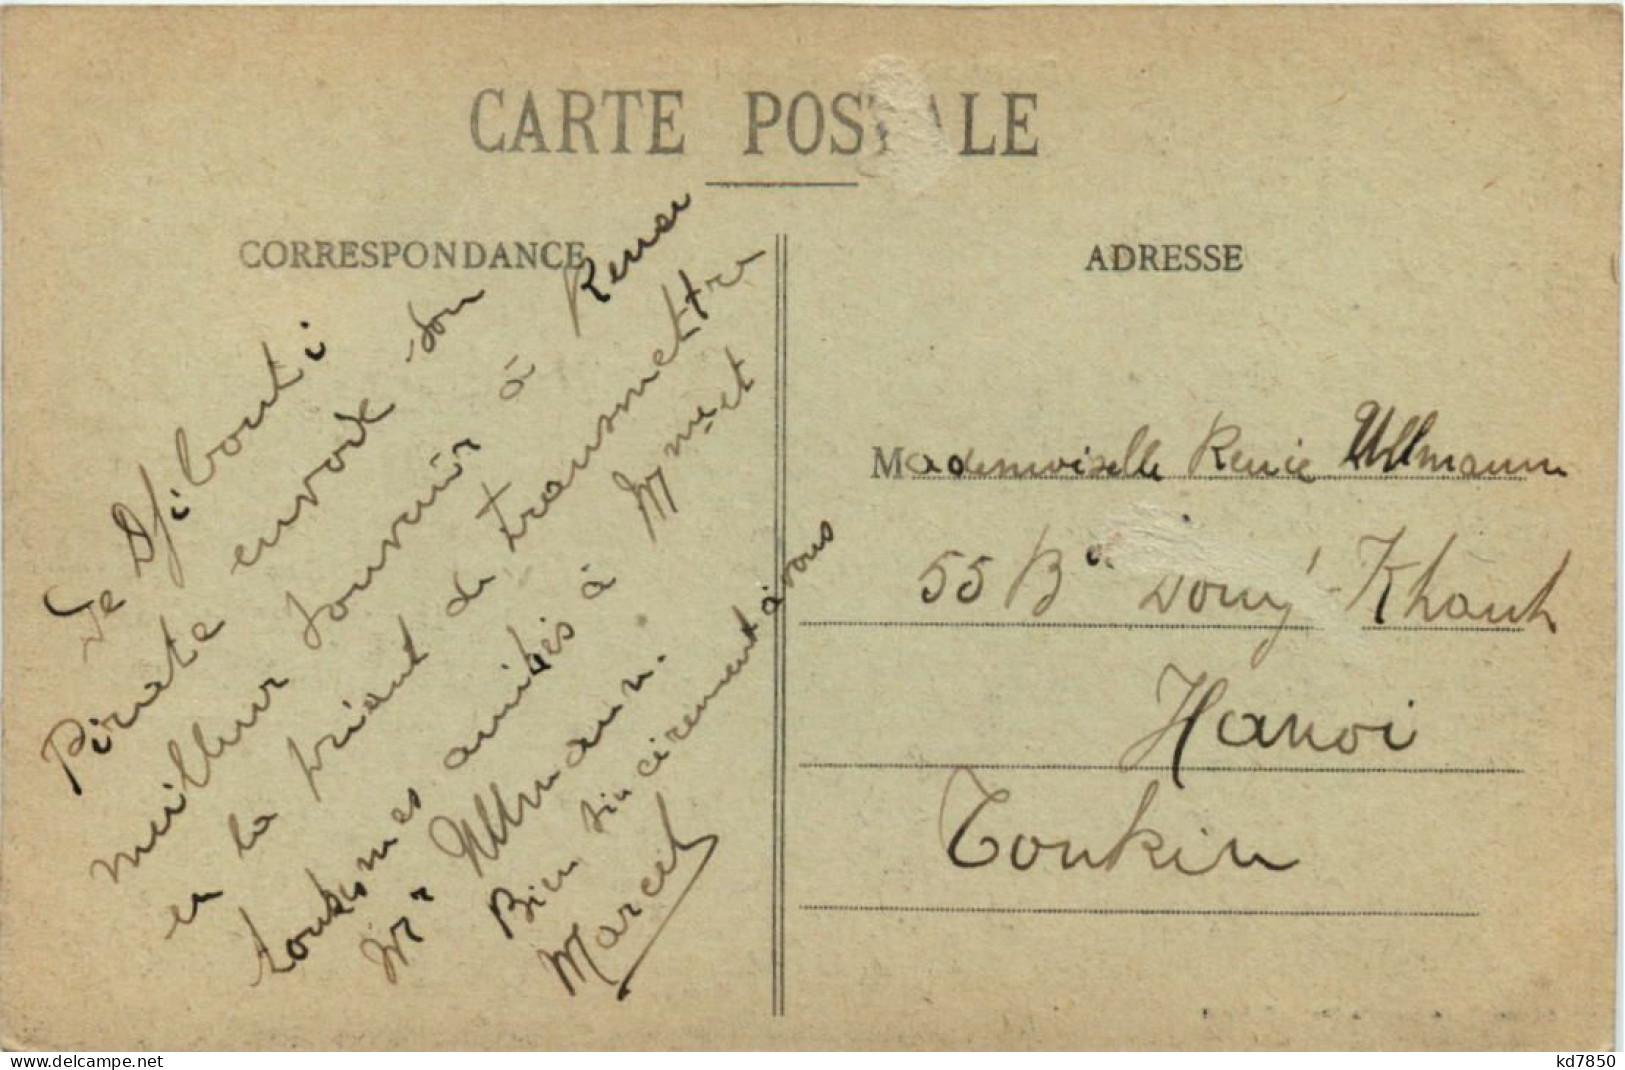 CARTE POSTALE
CORRESPONDANCE
ADRESSE
Le Djibouti
Pirate envoie son
meilleur souvenir à Renée
en la priant de transmettre
toutes mes amitiés à Mme et
Mr Ullmann.
Bien sincèrement à vous
Marcel
Mademoiselle Renée Ullmann
55 Bd Dong-Khanh
Hanoi
Tonkin
www.delcampe.net
kd7850